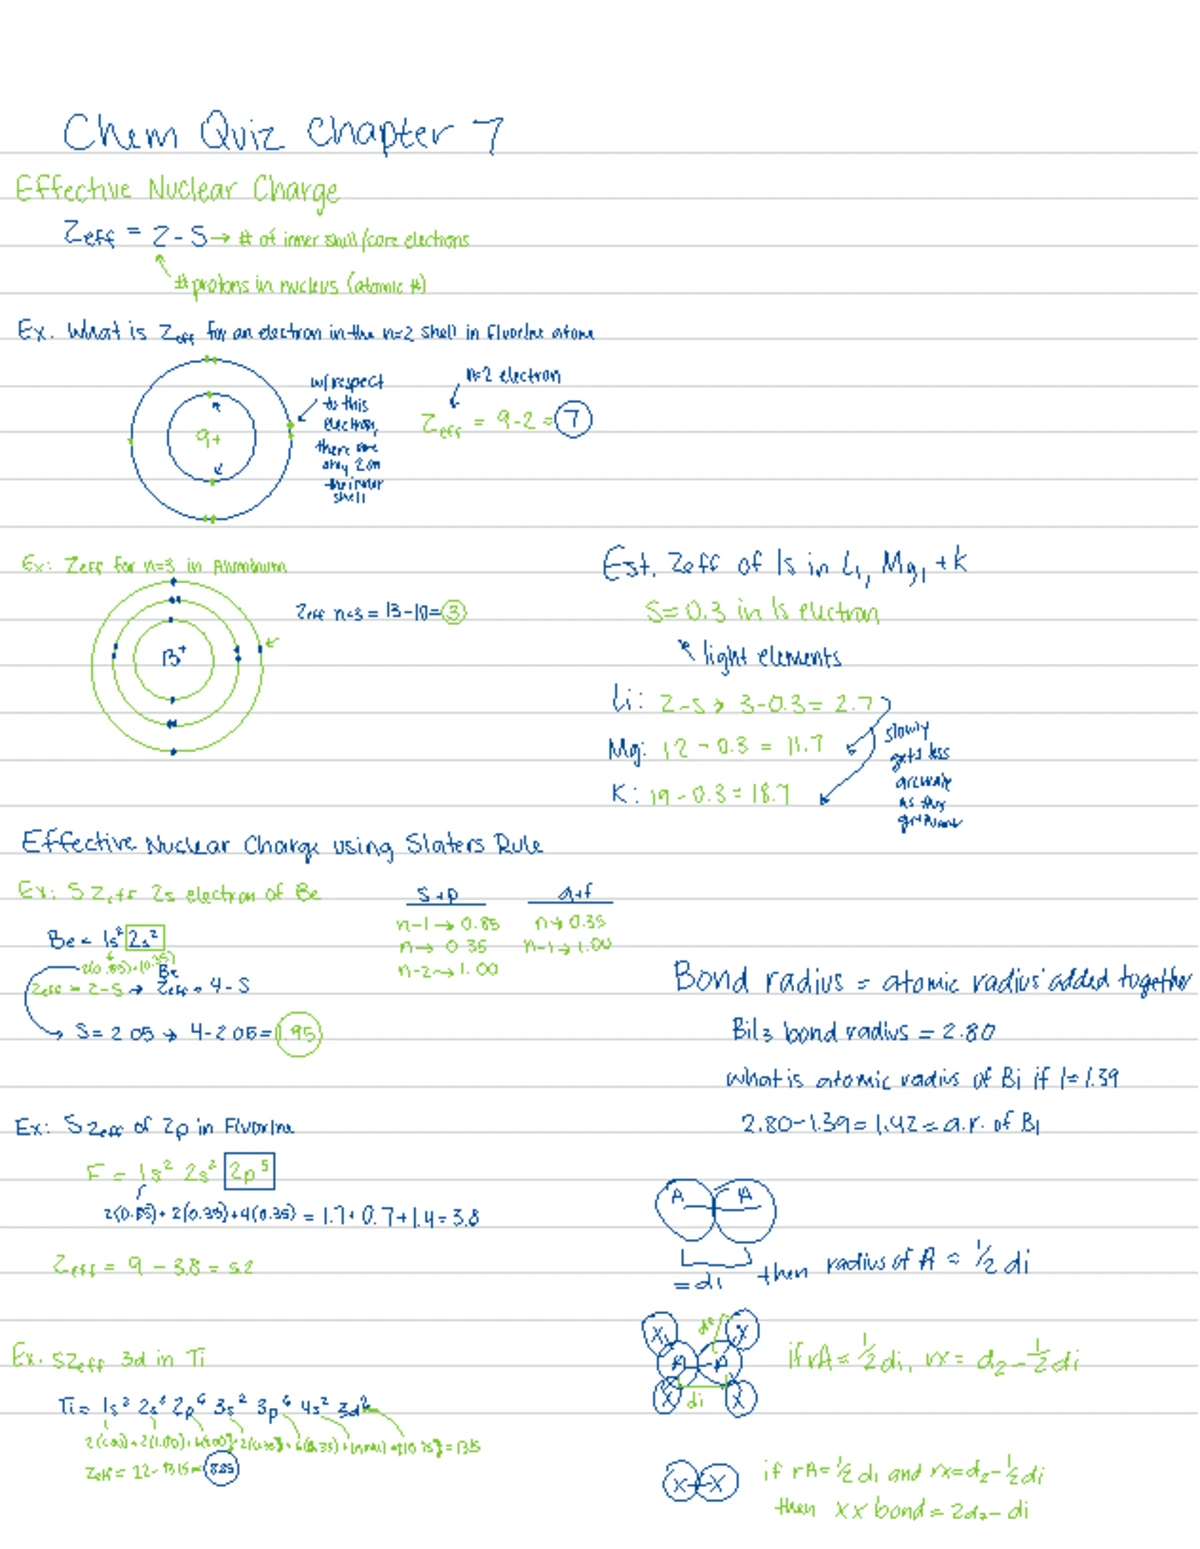 Chem Quiz Chapter 7
Effective Nuclear Charge
Zeff = Z - S → # of inner shell/core electrons
# protons in nucleus (atomic #)
Ex. What is Zeff for an electron in the n=2 shell in fluorine atom
w/respect
to this
electron,
there are
only 2 on
the inner
shell
n=2 electron
Zeff = 9-2 = 7
9+
Ex: Zeff for n=3 in Aluminum
Zeff n=3 = 13-10 = 3
13+
Est. Zeff of 1s in Li, Mg, + K
S = 0.3 in 1s electron
light elements
Li: Z-S → 3-0.3 = 2.7
Mg: 12 - 0.3 = 11.7
K: 19 - 0.3 = 18.7
slowly
gets less
accurate
as they
Effective Nuclear Charge using Slaters Rule
Ex: S Zeff 2s electron of Be
S+p
d+f
n-1 → 0.85
n → 0.35
n → 0.35
n-1 → 1.00
n-2 → 1.00
Be = 1s² 2s²
2(0.85)+(0.35)
Zeff = Z-S → Be Zeff = 4-S
S = 2.05 → 4-2.05 = 1.95
Bond radius = atomic radius' added together
BiI3 bond radius = 2.80
what is atomic radius of Bi if I = 1.39
2.80-1.39 = 1.42 = a.r. of Bi
Ex: S Zeff of 2p in Fluorine
F = 1s² 2s² 2p⁵
2(0.85)+2(0.35)+4(0.35) = 1.7+0.7+1.4 = 3.8
Zeff = 9 - 3.8 = 5.2
A A
= di then radius of A = ½ di
X X
A A
X X
d2
di
if rA = ½ di, rx = d2 - ½ di
Ex. S Zeff 3d in Ti
Ti = 1s² 2s² 2p⁶ 3s² 3p⁶ 4s² 3d²
X X
if rA = ½ di and rx = d2 - ½ di
then XX bond = 2d2 - di